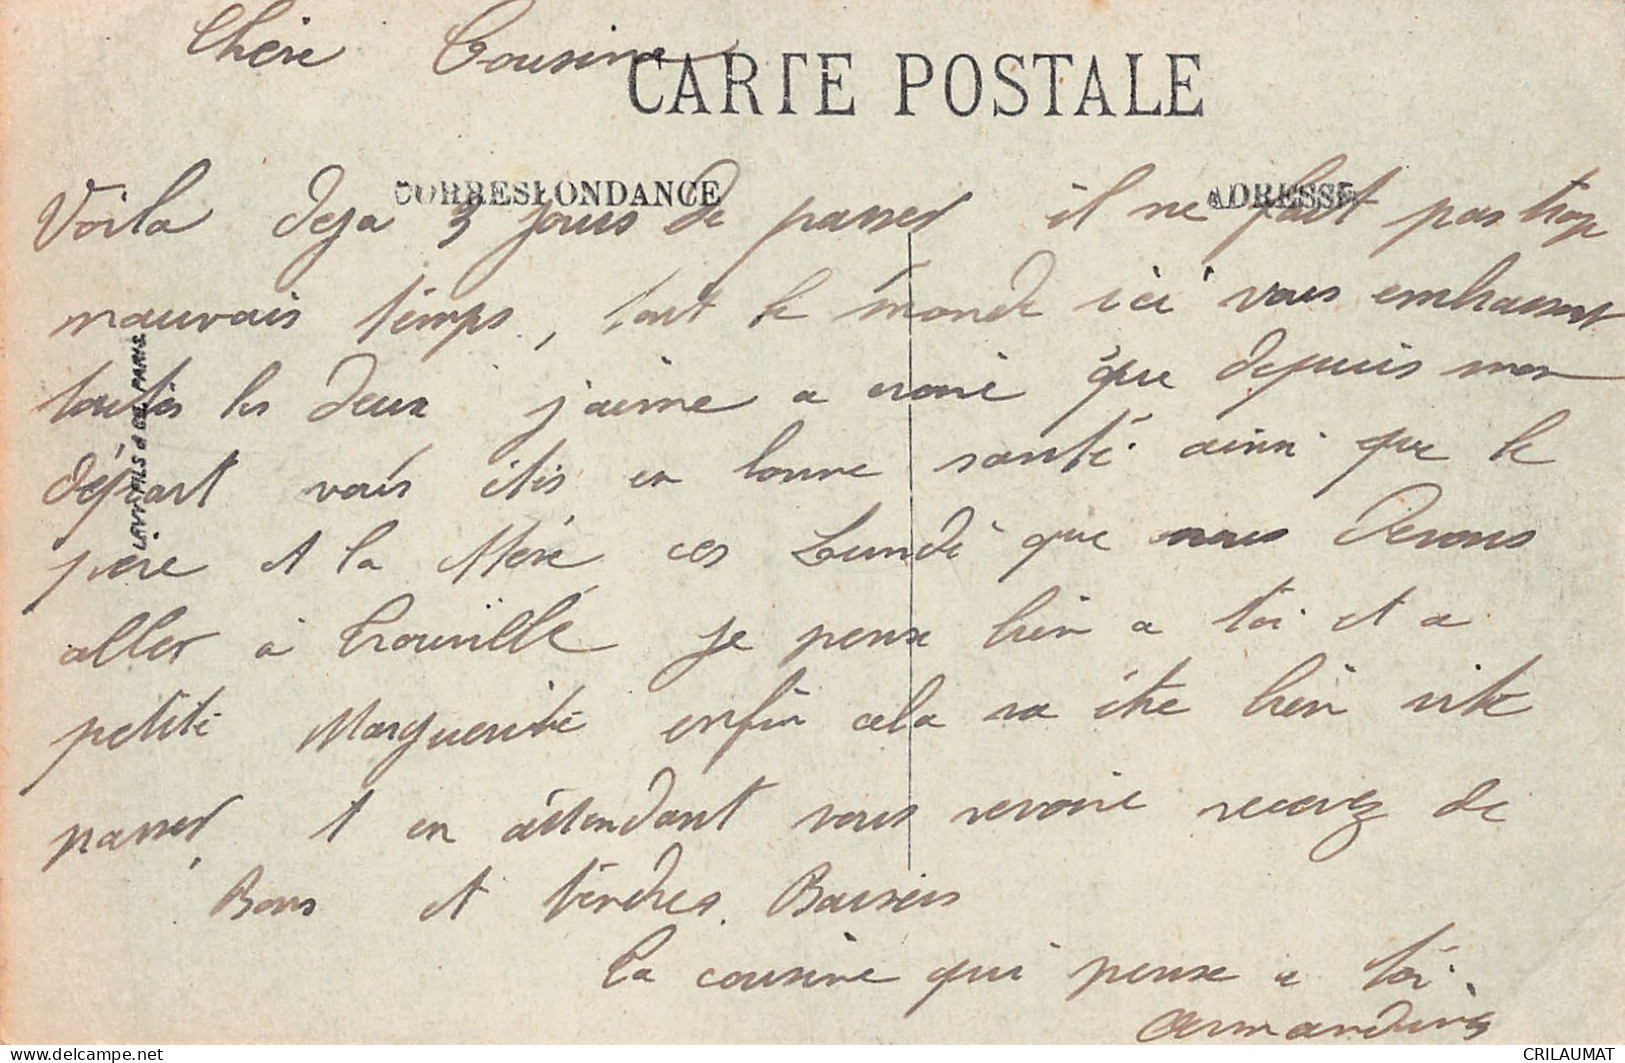 Chère Cousine
CARTE POSTALE
CORRESPONDANCE
ADRESSE
Voila deja 3 jours de passer il ne fait pas trop
mauvais temps, tout le monde ici vous embrassent
toutes les deux j'aime a croire que depuis mon
départ vous êtes en bonne santé ainsi que le
père et la Mère ces Lundi que nous devons
aller à Trouville je pense bien a toi et a
petite Marguerite enfin cela va être bien vite
passer et en attendant vous revoire recevez de
Bons et tendres Baisers
Ta cousine qui pense a toi.
Armandine
LEVY FILS & CIE. PARIS.
delcampe.net
CRILAUMAT